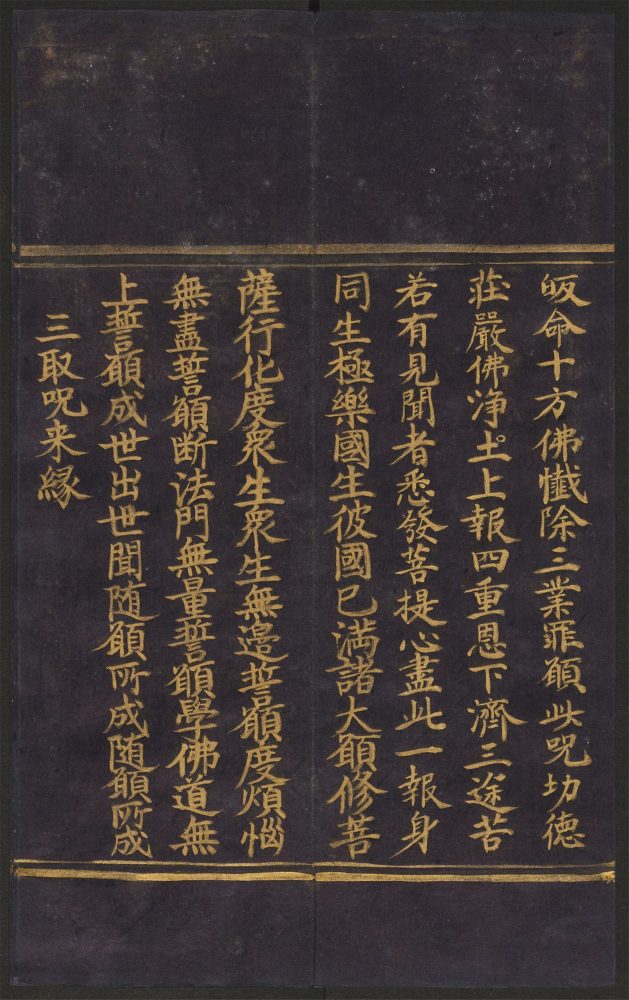 皈命十方佛懺除三業罪願此呪功德
莊嚴佛淨土上報四重恩下濟三途苦
若有見聞者悉發菩提心盡此一報身
同生極樂國生彼國已滿諸大願修菩
薩行化度眾生眾生無邊誓願度煩惱
無盡誓願断法門無量誓願學佛道無
上誓願成世出世聞随願所成随願所成
三取呪来縁